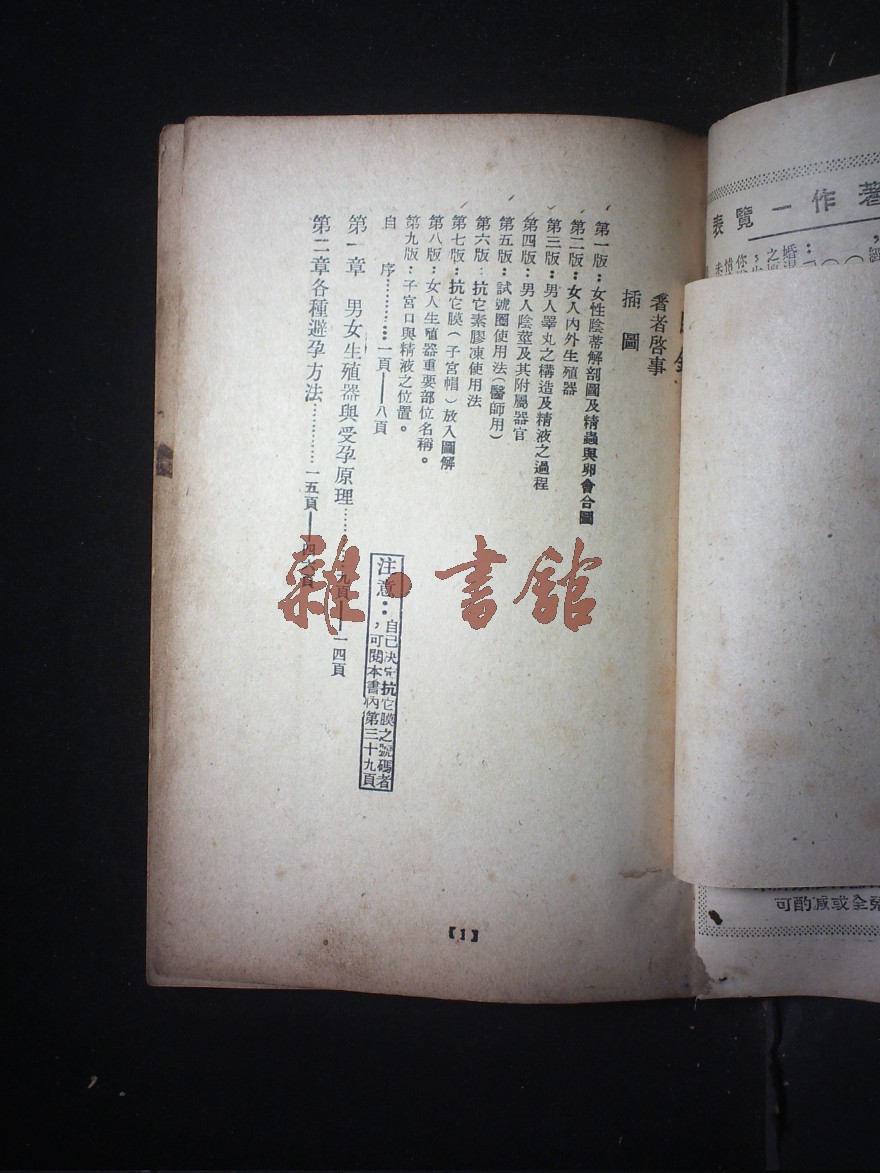 著者啓事
插圖
第一版：女性陰蒂解剖圖及精蟲與卵會合圖
第二版：女人內外生殖器
第三版：男人睪丸之構造及精液之過程
第四版：男人陰莖及其附屬器官
第五版：試號圈使用法（醫師用）
第六版：抗它素膠凍使用法
第七版：抗它膜（子宮帽）放入圖解
第八版：女人生殖器重要部位名稱。
第九版：子宮口與精液之位置。
自序…………一頁——八頁
第一章 男女生殖器與受孕原理………九頁——一四頁
第二章各種避孕方法…………一五頁——四六頁
注意：自己決定抗它膜之號碼者
，可閱本書內第三十九頁
【1】
雜·書館
著作一覽表
可酌減或全張